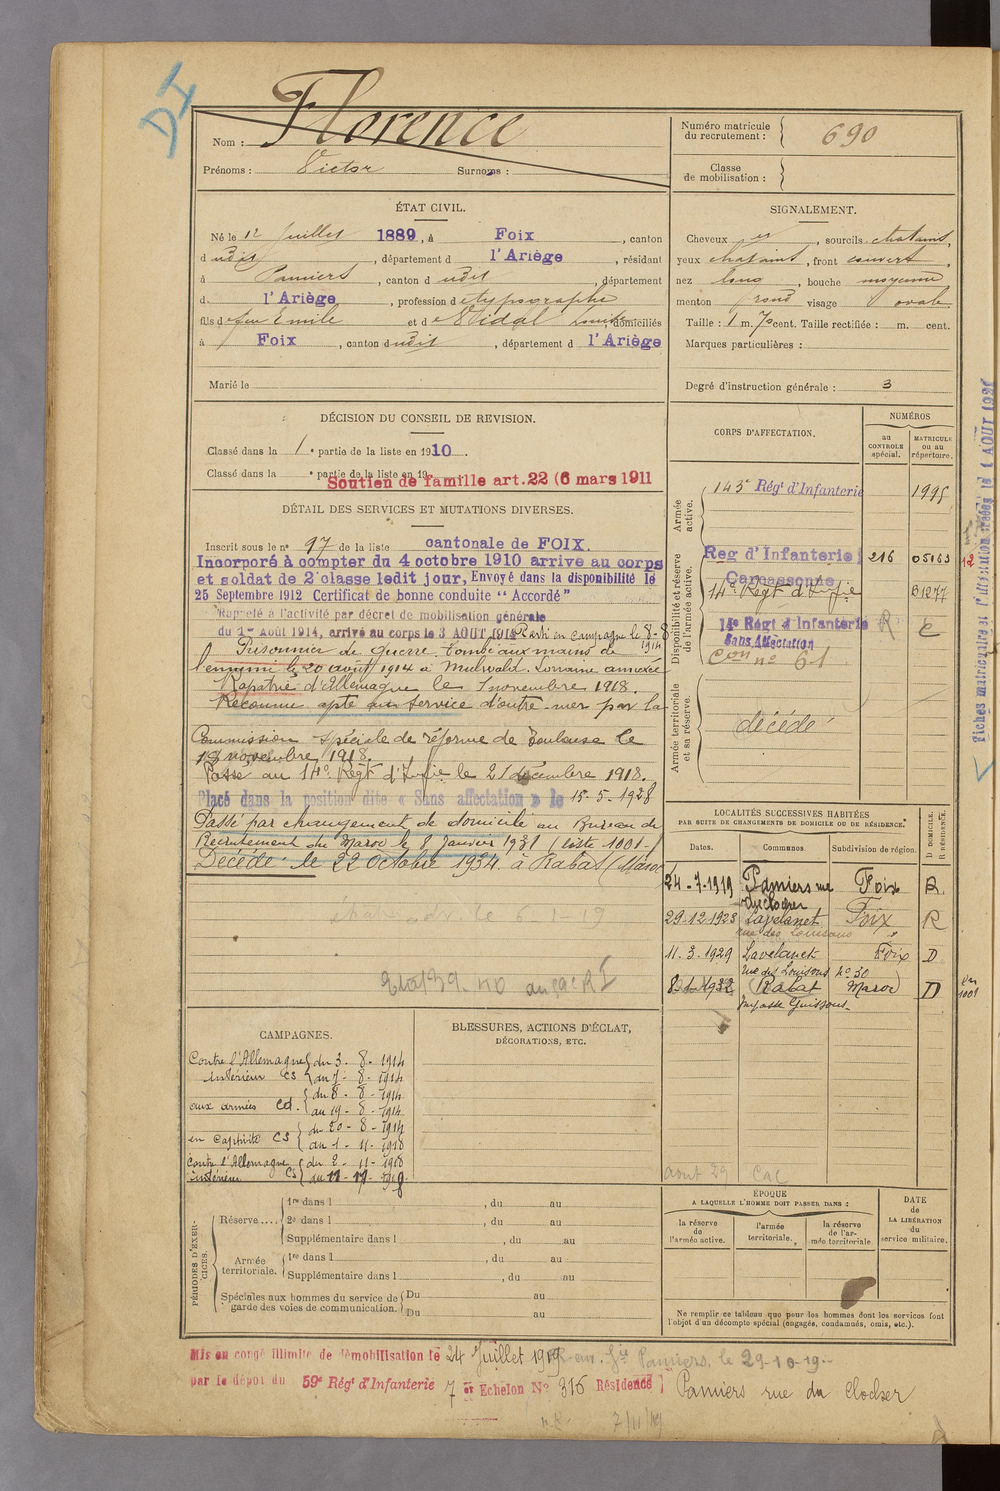 DI
Nom : Florence
Prénoms : Victor Surnoms :
Numéro matricule du recrutement : 690
Classe de mobilisation :
ÉTAT CIVIL.
Né le 12 Juillet 1889, à Foix, canton
d udit, département d l'Ariège, résidant
à Pamiers, canton d udit, département
d l'Ariège, profession d e typographe
fils d e feu Emile et d e Vidal Louise, domiciliés
à Foix, canton d udit, département d l'Ariège
Marié le
SIGNALEMENT.
Cheveux et, sourcils chatains,
yeux chatains, front couvert,
nez long, bouche moyenne
menton rond visage ovale
Taille : 1 m. 70 cent. Taille rectifiée : m. cent.
Marques particulières :
Degré d'instruction générale : 3
DÉCISION DU CONSEIL DE REVISION.
Classé dans la 1e partie de la liste en 1910.
Classé dans la e partie de la liste en 19
Soutien de famille art. 22 (6 mars 1911
DÉTAIL DES SERVICES ET MUTATIONS DIVERSES.
Inscrit sous le n° 97 de la liste cantonale de FOIX.
Incorporé à compter du 4 octobre 1910 arrive au corps
et soldat de 2e classe ledit jour, Envoyé dans la disponibilité le
25 Septembre 1912 Certificat de bonne conduite "Accordé"
Rappelé à l'activité par décret de mobilisation générale
du 1er Août 1914, arrivé au corps le 3 AOUT 1914 Parti en campagne le 8-8-1914
Prisonnier de guerre. Tombé aux mains de
l'ennemi le 20 août 1914 à Mulwald. Lorraine annexée
Rapatrié d'Allemagne le 1 novembre 1918.
Reconnu apte au service d'outre-mer par la
Commission spéciale de réforme de Toulouse le
19 novembre 1918.
Passé au 14e Regt d'Infie le 21 décembre 1918.
Placé dans la position dite « Sans affectation » le 15-5-1928
Passé par changement de domicile au Bureau de
Recrutement du Maroc le 8 Janvier 1931 (liste 1001-)
Décédé le 22 octobre 1934 à Rabat (Maroc
le 6-1-19
CORPS D'AFFECTATION.
NUMÉROS
au CONTROLE spécial.
MATRICULE ou au répertoire.
Armée active.
145e Régt d'Infanterie 1995
Disponibilité et réserve de l'armée active.
Reg d'Infanterie 216 05163
Carcassonne
14e Regt d'Infie 61277
14e Régt d'Infanterie R E
Sans Affectation
Con n° 61
Armée territoriale et sa réserve.
décédé
LOCALITÉS SUCCESSIVES HABITÉES
PAR SUITE DE CHANGEMENTS DE DOMICILE OU DE RÉSIDENCE.
Dates. Communes. Subdivision de région. D DOMICILE. R RÉSIDENCE.
24-7-1919 Pamiers rue du clocher Foix R
29-12-1923 Lavelanet Foix R
rue des Louisous "
11-3-1929 Lavelanet Foix D
rue des Louisous n° 50
8-1-1932 Rabat Maroc D
Impasse Guissous
1001
aout 29 Cac
CAMPAGNES.
Contre l'Allemagne du 3-8-1914
intérieur CS au 7-8-1914
du 8-8-1914
aux armées Cd. au 19-8-1914
du 20-8-1914
en captivité CS au 1-11-1918
Contre l'Allemagne du 2-11-1918
intérieur CS
BLESSURES, ACTIONS D'ÉCLAT,
DÉCORATIONS, ETC.
PÉRIODES D'EXERCICES.
Réserve.... 1re dans l , du au
2e dans l , du au
Supplémentaire dans l , du au
Armée territoriale. 1re dans l , du au
Supplémentaire dans l , du au
Spéciales aux hommes du service de garde des voies de communication. Du au
Du au
ÉPOQUE
A LAQUELLE L'HOMME DOIT PASSER DANS :
la réserve de l'armée active.
l'armée territoriale.
la réserve de l'armée territoriale
DATE DE LA LIBÉRATION du service militaire.
Ne remplir ce tableau que pour les hommes dont les services font
l'objet d'un décompte spécial (engagés, condamnés, omis, etc.).
Mis en congé illimité de démobilisation le 24 Juillet 1919 Pamiers, le 29-10-19
par le dépôt du 59e Régt d'Infanterie 7 er Echelon N° 316 Résidence Pamiers rue du Clocher
7/11/19